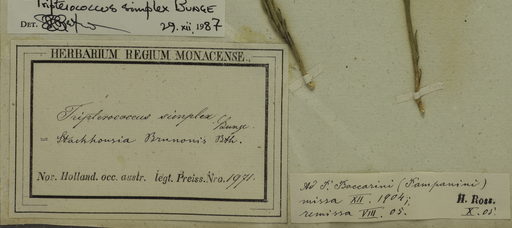 Tripterococcus simplex BUNGE
DET. 29. xii. 1987
HERBARIUM REGIUM MONACENSE.
Tripterococcus simplex
Bunge.
Stackhousia Brunonis Bth.
Nov. Holland. occ. austr. legt. Preiss. Nro. 1971.
Ad P. Baccarini (Pampanini)
missa XII. 1904;
remissa VIII. 05.
H. Ross.
X. 05